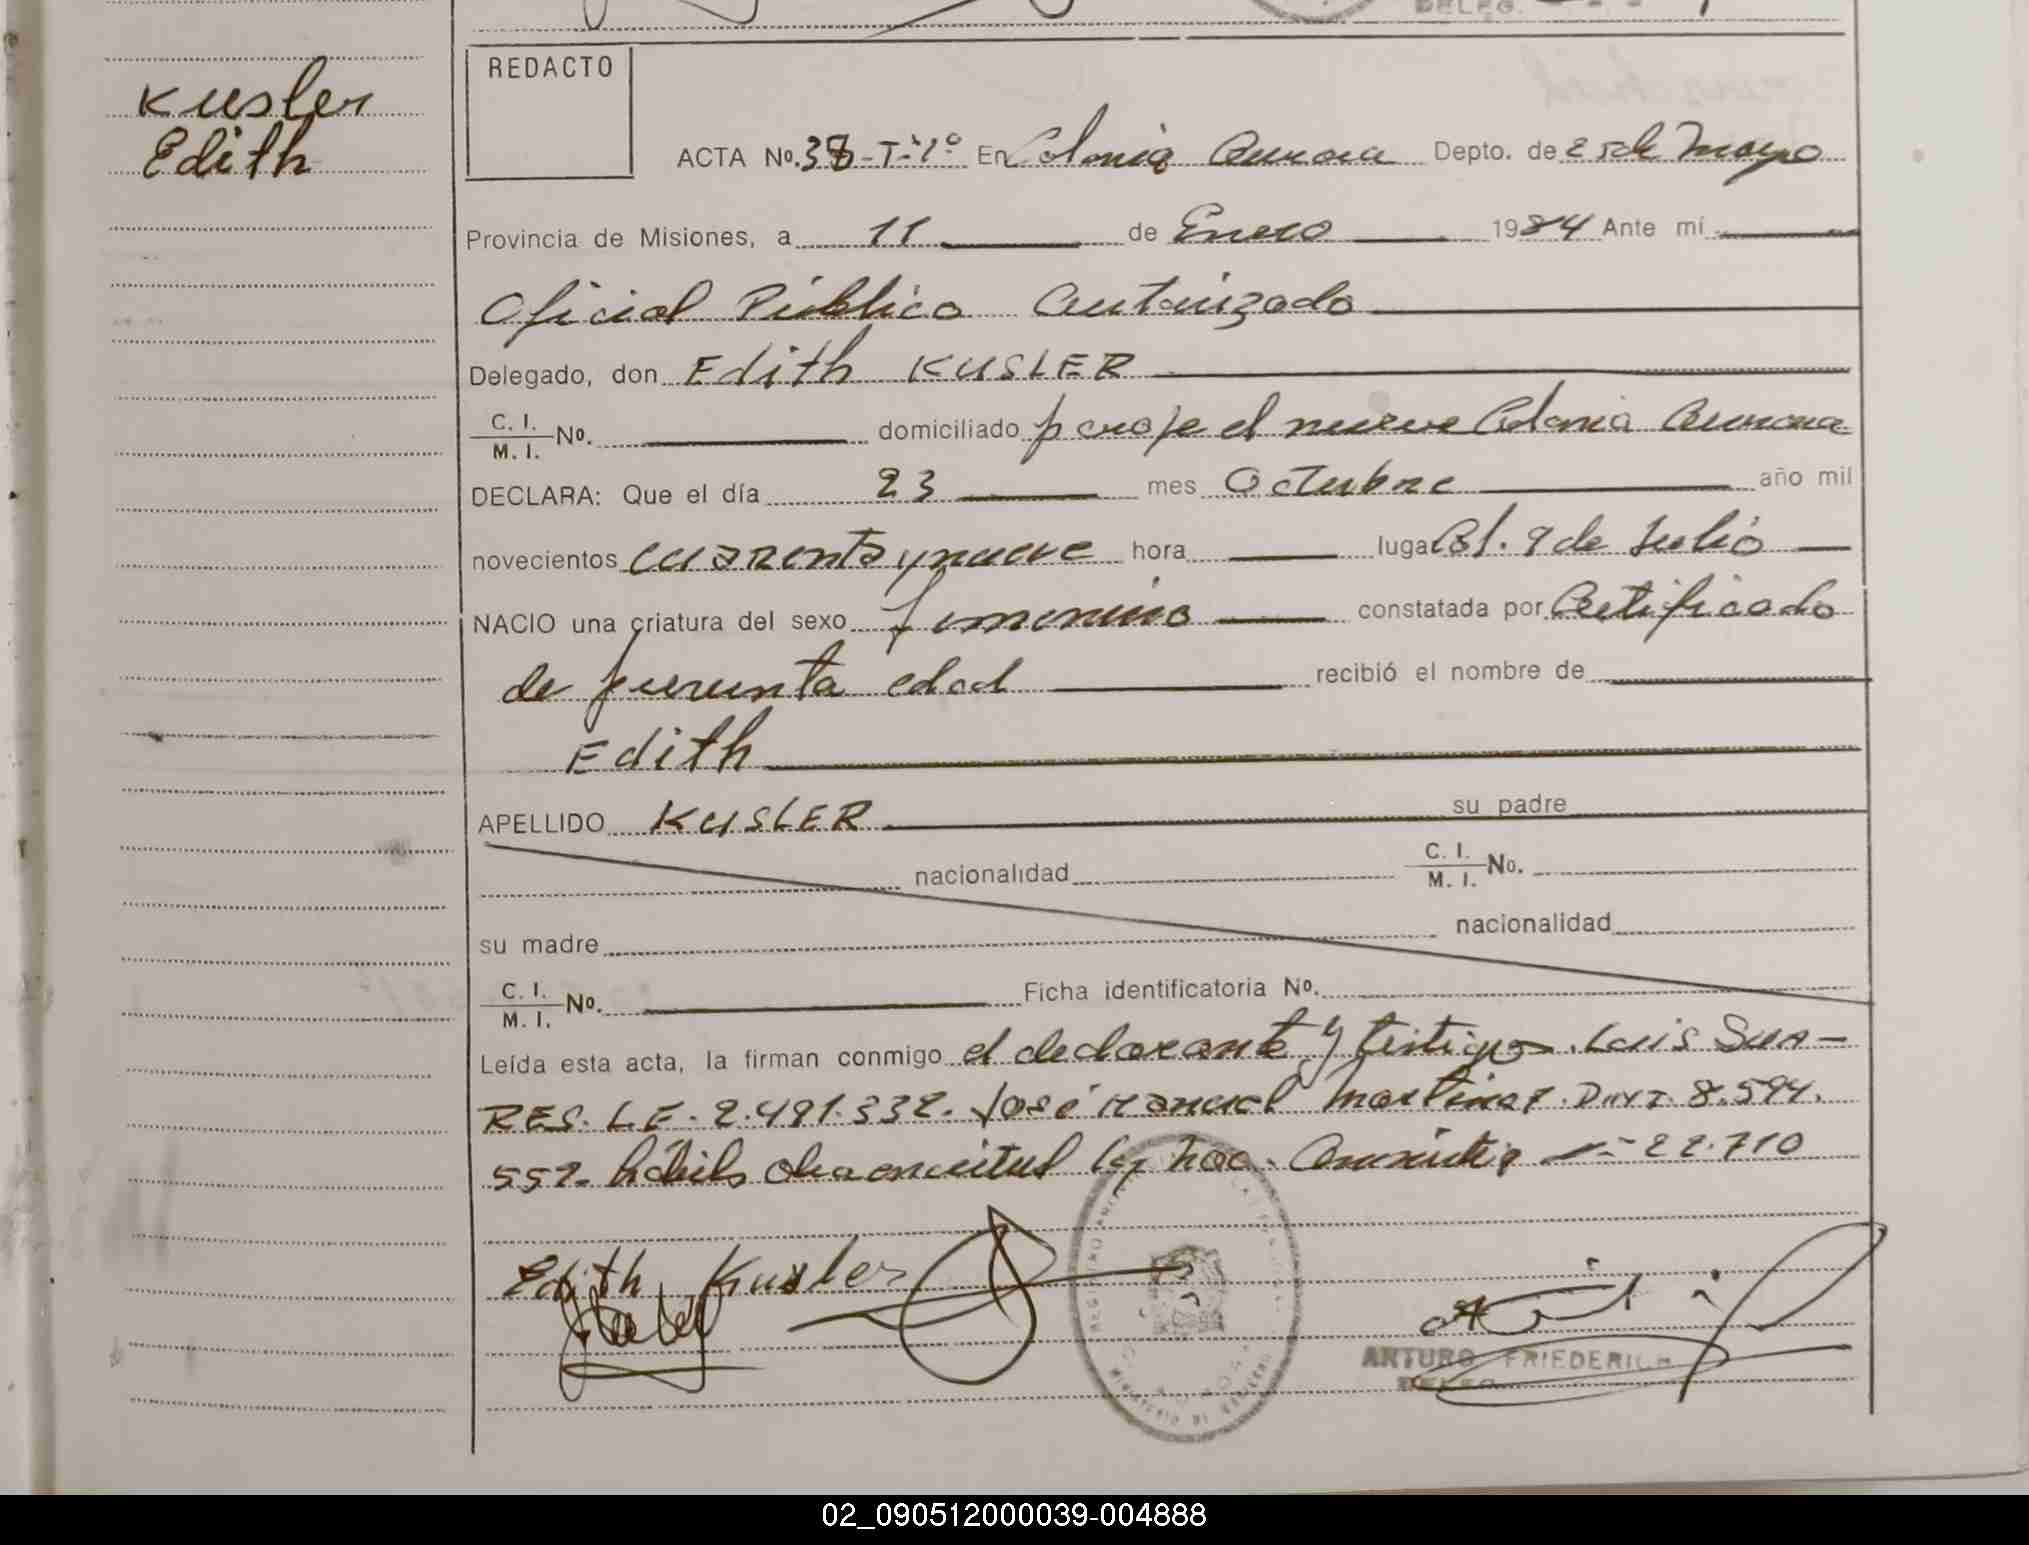 DELEG.
Kusler
Edith
REDACTO
ACTA No. 38-T-1º En Colonia Aurora Depto. de 25 de Mayo
Provincia de Misiones, a 11 de Enero 1984 Ante mí
Oficial Público Autorizado
Delegado, don Edith KUSLER
C. I. / M. I. No. domiciliado paraje el nueve Colonia Aurora
DECLARA: Que el día 23 mes Octubre año mil
novecientos cuarenta y nueve hora lugar Col. 9 de Julio
NACIO una criatura del sexo femenino constatada por Certificado
de presunta edad recibió el nombre de
Edith
APELLIDO KUSLER su padre
nacionalidad C. I. / M. I. No.
su madre nacionalidad
C. I. / M. I. No. Ficha identificatoria No.
Leída esta acta, la firman conmigo el declarante y testigos. Luis SUA-
RES. L.E. 2.491.332. José Manuel Martinez. DNI. 8.594.
557. hábiles 22.710
Edith Kusler
ARTURO FRIEDERICH
DELEG.
02_090512000039-004888